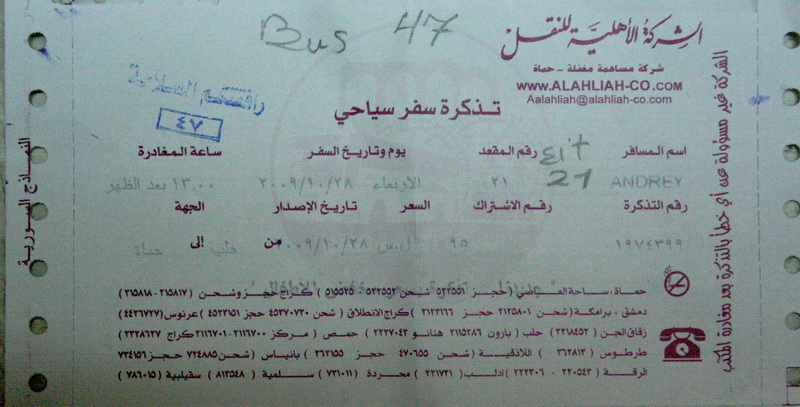 Bus 47
الشركة الأهلية للنقل
شركة مساهمة مغفلة - حماة
WWW.ALAHLIAH-CO.COM
Aalahliah@alahliah-co.com
رافقتكم السلامة
٤٧
تذكرة سفر سياحي
اسم المسافر رقم المقعد يوم وتاريخ السفر ساعة المغادرة
ANDREY ٢١ 21 الاربعاء ٢٠٠٩/١٠/٢٨ ١٣,٠٠ بعد الظهر
رقم التذكرة رقم الاشتراك السعر تاريخ الإصدار الجهة
١٩٧٤٣٩٩ ٩٥ ل.س ٠٠٩/١٠/٢٨ من حلب إلى حماة
حماة: ساحة العاصي (حجز ٥٢٢٥٥١ شحن ٥٢٢٥٥٢ - ٥١٥٥٢٥) كراج حجز وشحن (٢١٥٨١٧ - ٢١٥٨١٨)
دمشق: برامكة (شحن ٢١٢٥٨٠١ حجز ٢١٢٣١٦٦) كراج الانطلاق (شحن ٤٥٣٧٠٧٣٠ حجز ٤٥٢٣١٥١) عرنوس (٤٤٢٦٧٧٧)
زقاق الجن (٢٢١٨٤٥٢) حلب (بارون ٢١١٥٢٨٦ هنانو ٢٢٢٧٠٤٢) حمص (مركز ٢١١٦٧٠٠ - ٢١١٦٧٠١ كراج ٢٣٢٨٦٣٧)
طرطوس (٣٦٢٨١٣) اللاذقية (شحن ٤٧٠٦٥٥ حجز ٣٦٢١٥٥) بانياس (شحن ٧٢٤٨٨٥ حجز ٧٢٤١٥٦)
الرقة (٢٢٠٥٤٣ - ٢٢٢٣٠٦) ادلب (٢٢١٧٣١) محردة (٧٣٦٠١١) سلمية (٨١٣٥٤٨) سقيلبية (٧٨٦٠١٥)
الشركة غير مسؤولة عن أي خطأ بالتذكرة بعد مغادرة المكتب
النماذج السورية